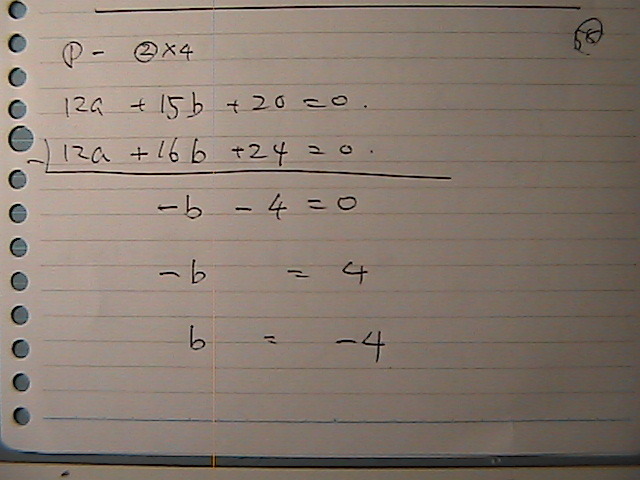 ① - ②×4
12a + 15b + 20 = 0.
-) 12a + 16b + 24 = 0.
-b - 4 = 0
-b = 4
b = -4